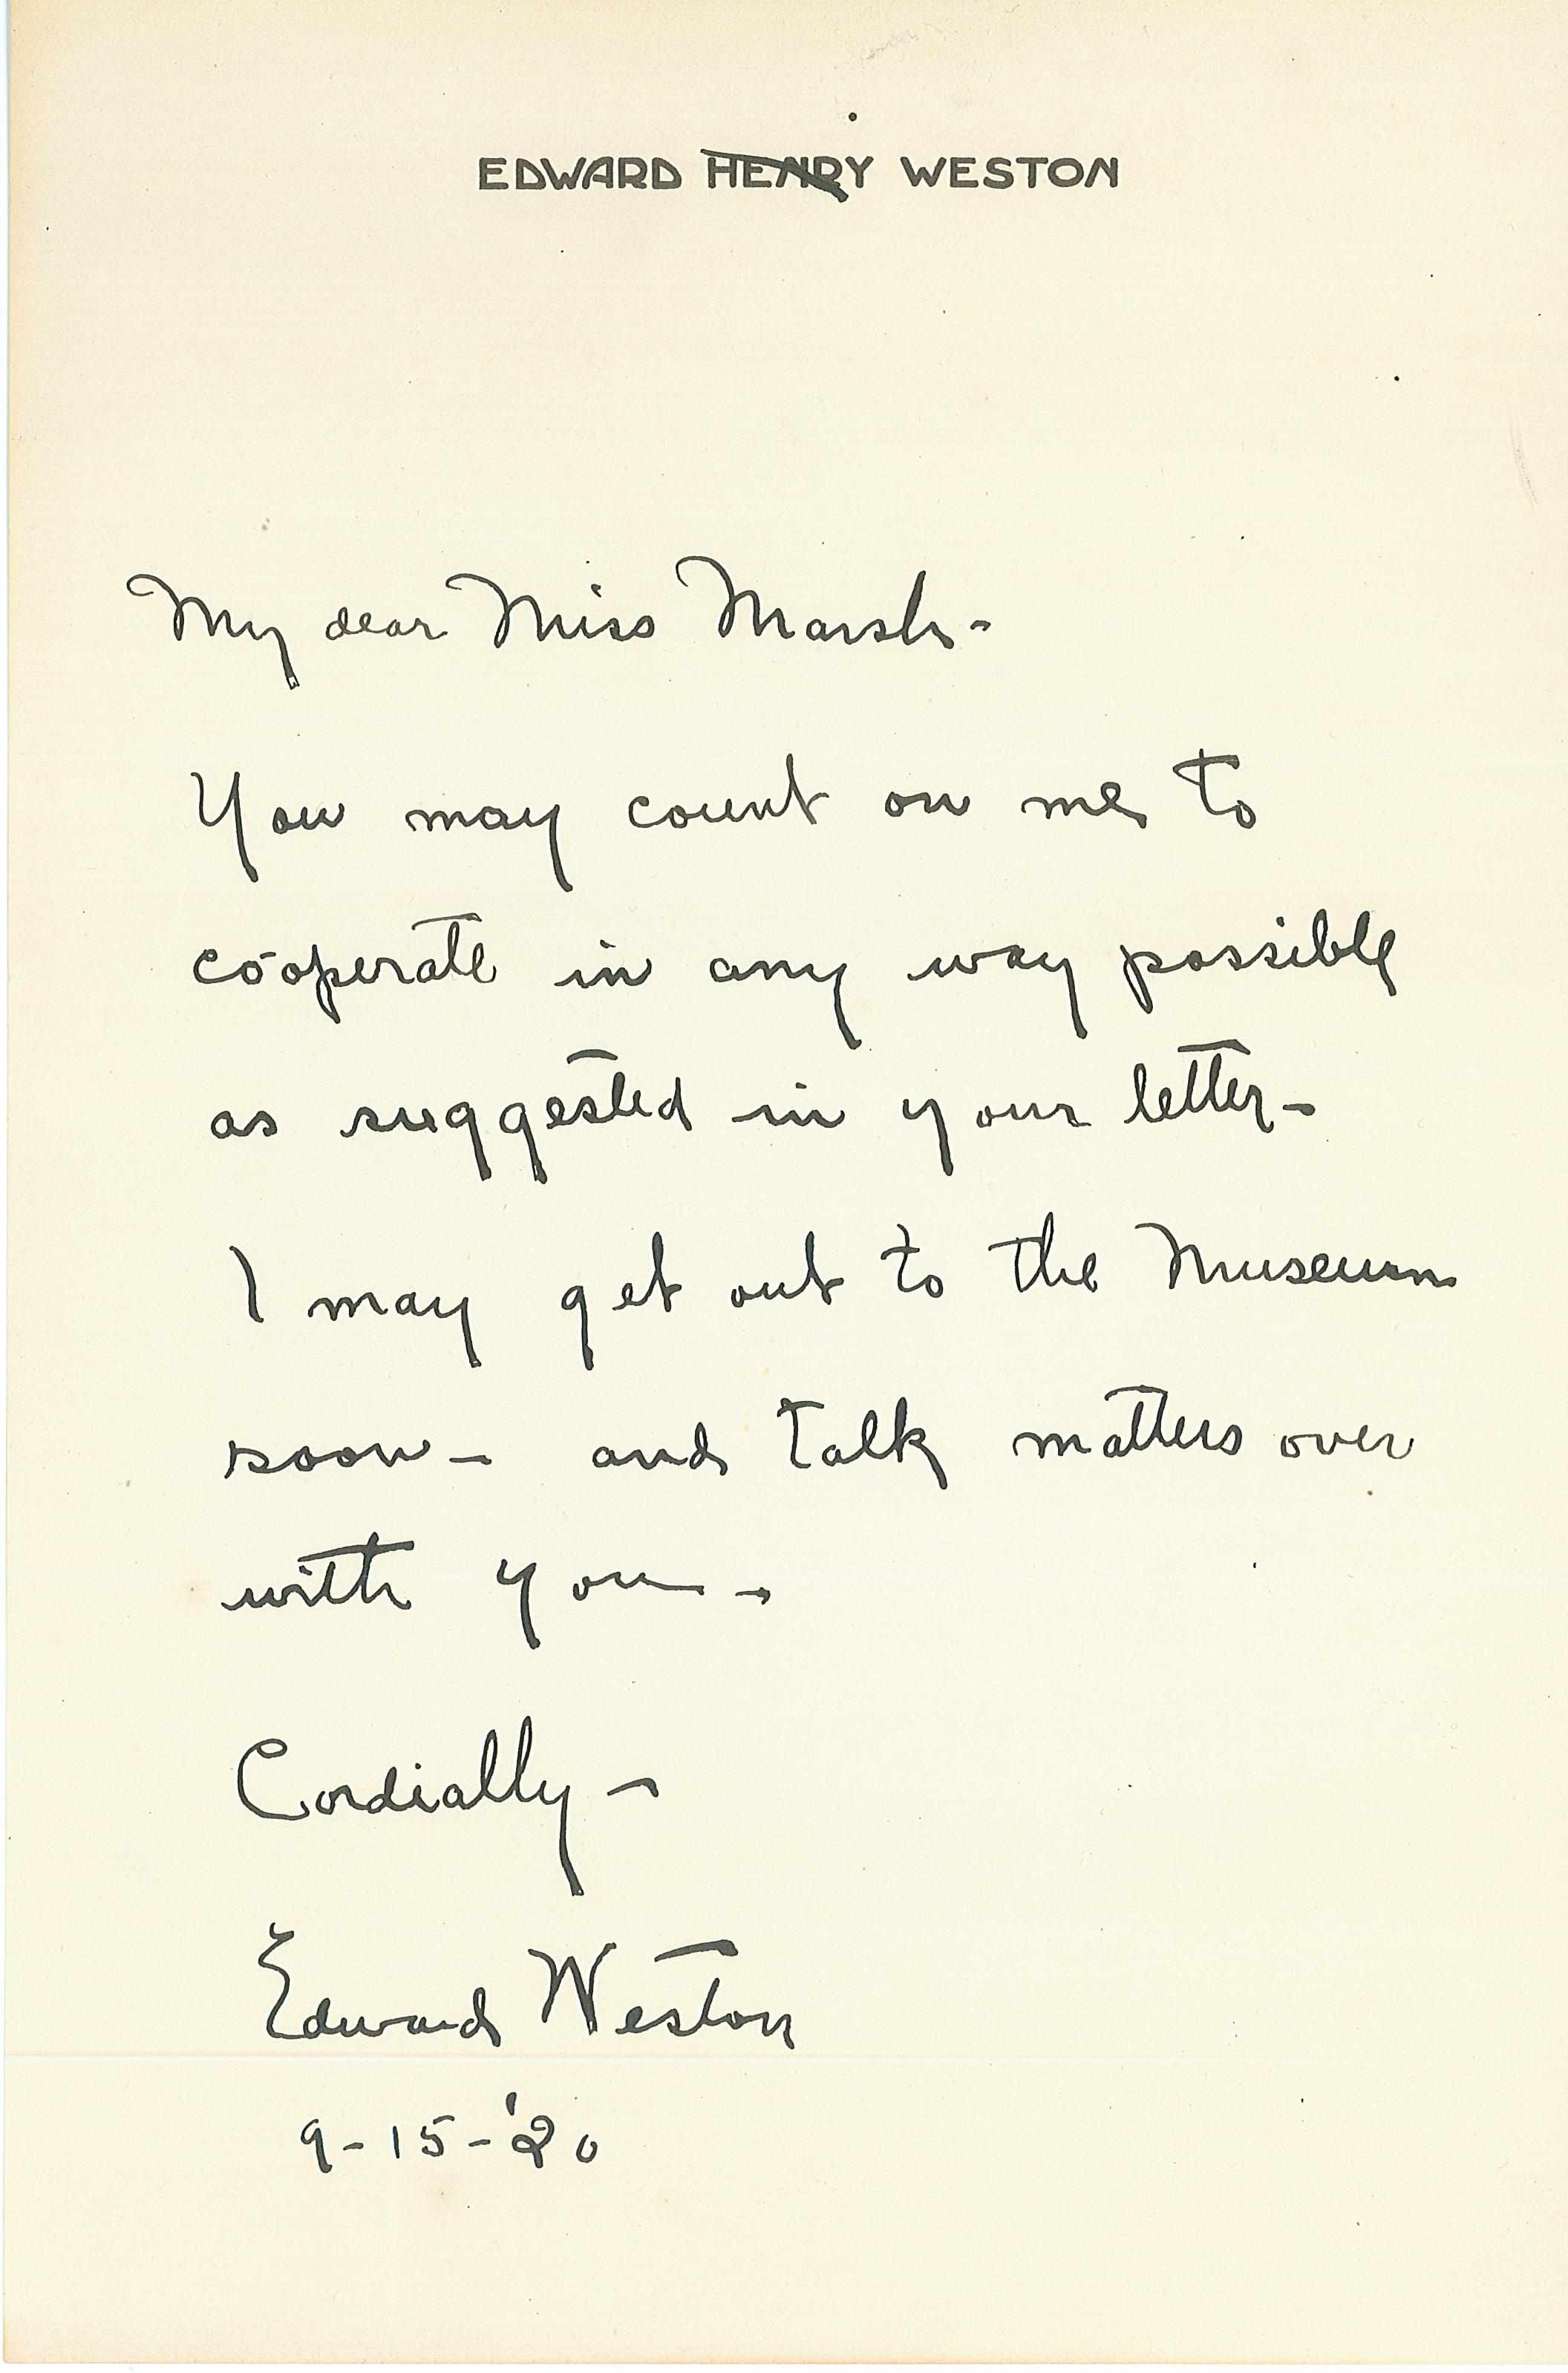 EDWARD HENRY WESTON
My dear Miss Marsh-
You may count on me to
coöperate in any way possible
as suggested in your letter-
I may get out to the Museum
soon- and talk matters over
with you-
Cordially-
Edward Weston
9-15-'20